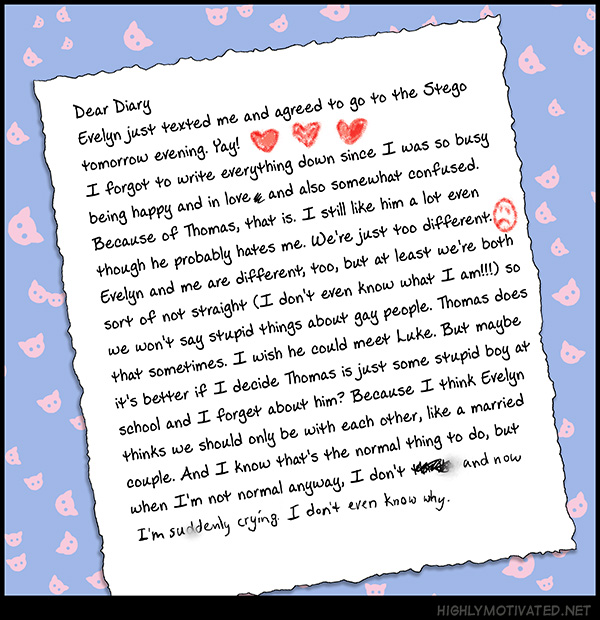 Dear Diary
Evelyn just texted me and agreed to go to the Stego
tomorrow evening. Yay!
I forgot to write everything down since I was so busy
being happy and in love and also somewhat confused.
Because of Thomas, that is. I still like him a lot even
though he probably hates me. We're just too different.
Evelyn and me are different, too, but at least we're both
sort of not straight (I don't even know what I am!!!) so
we won't say stupid things about gay people. Thomas does
that sometimes. I wish he could meet Luke. But maybe
it's better if I decide Thomas is just some stupid boy at
school and I forget about him? Because I think Evelyn
thinks we should only be with each other, like a married
couple. And I know that's the normal thing to do, but
when I'm not normal anyway, I don't and now
I'm suddenly crying. I don't even know why.
HIGHLYMOTIVATED.NET